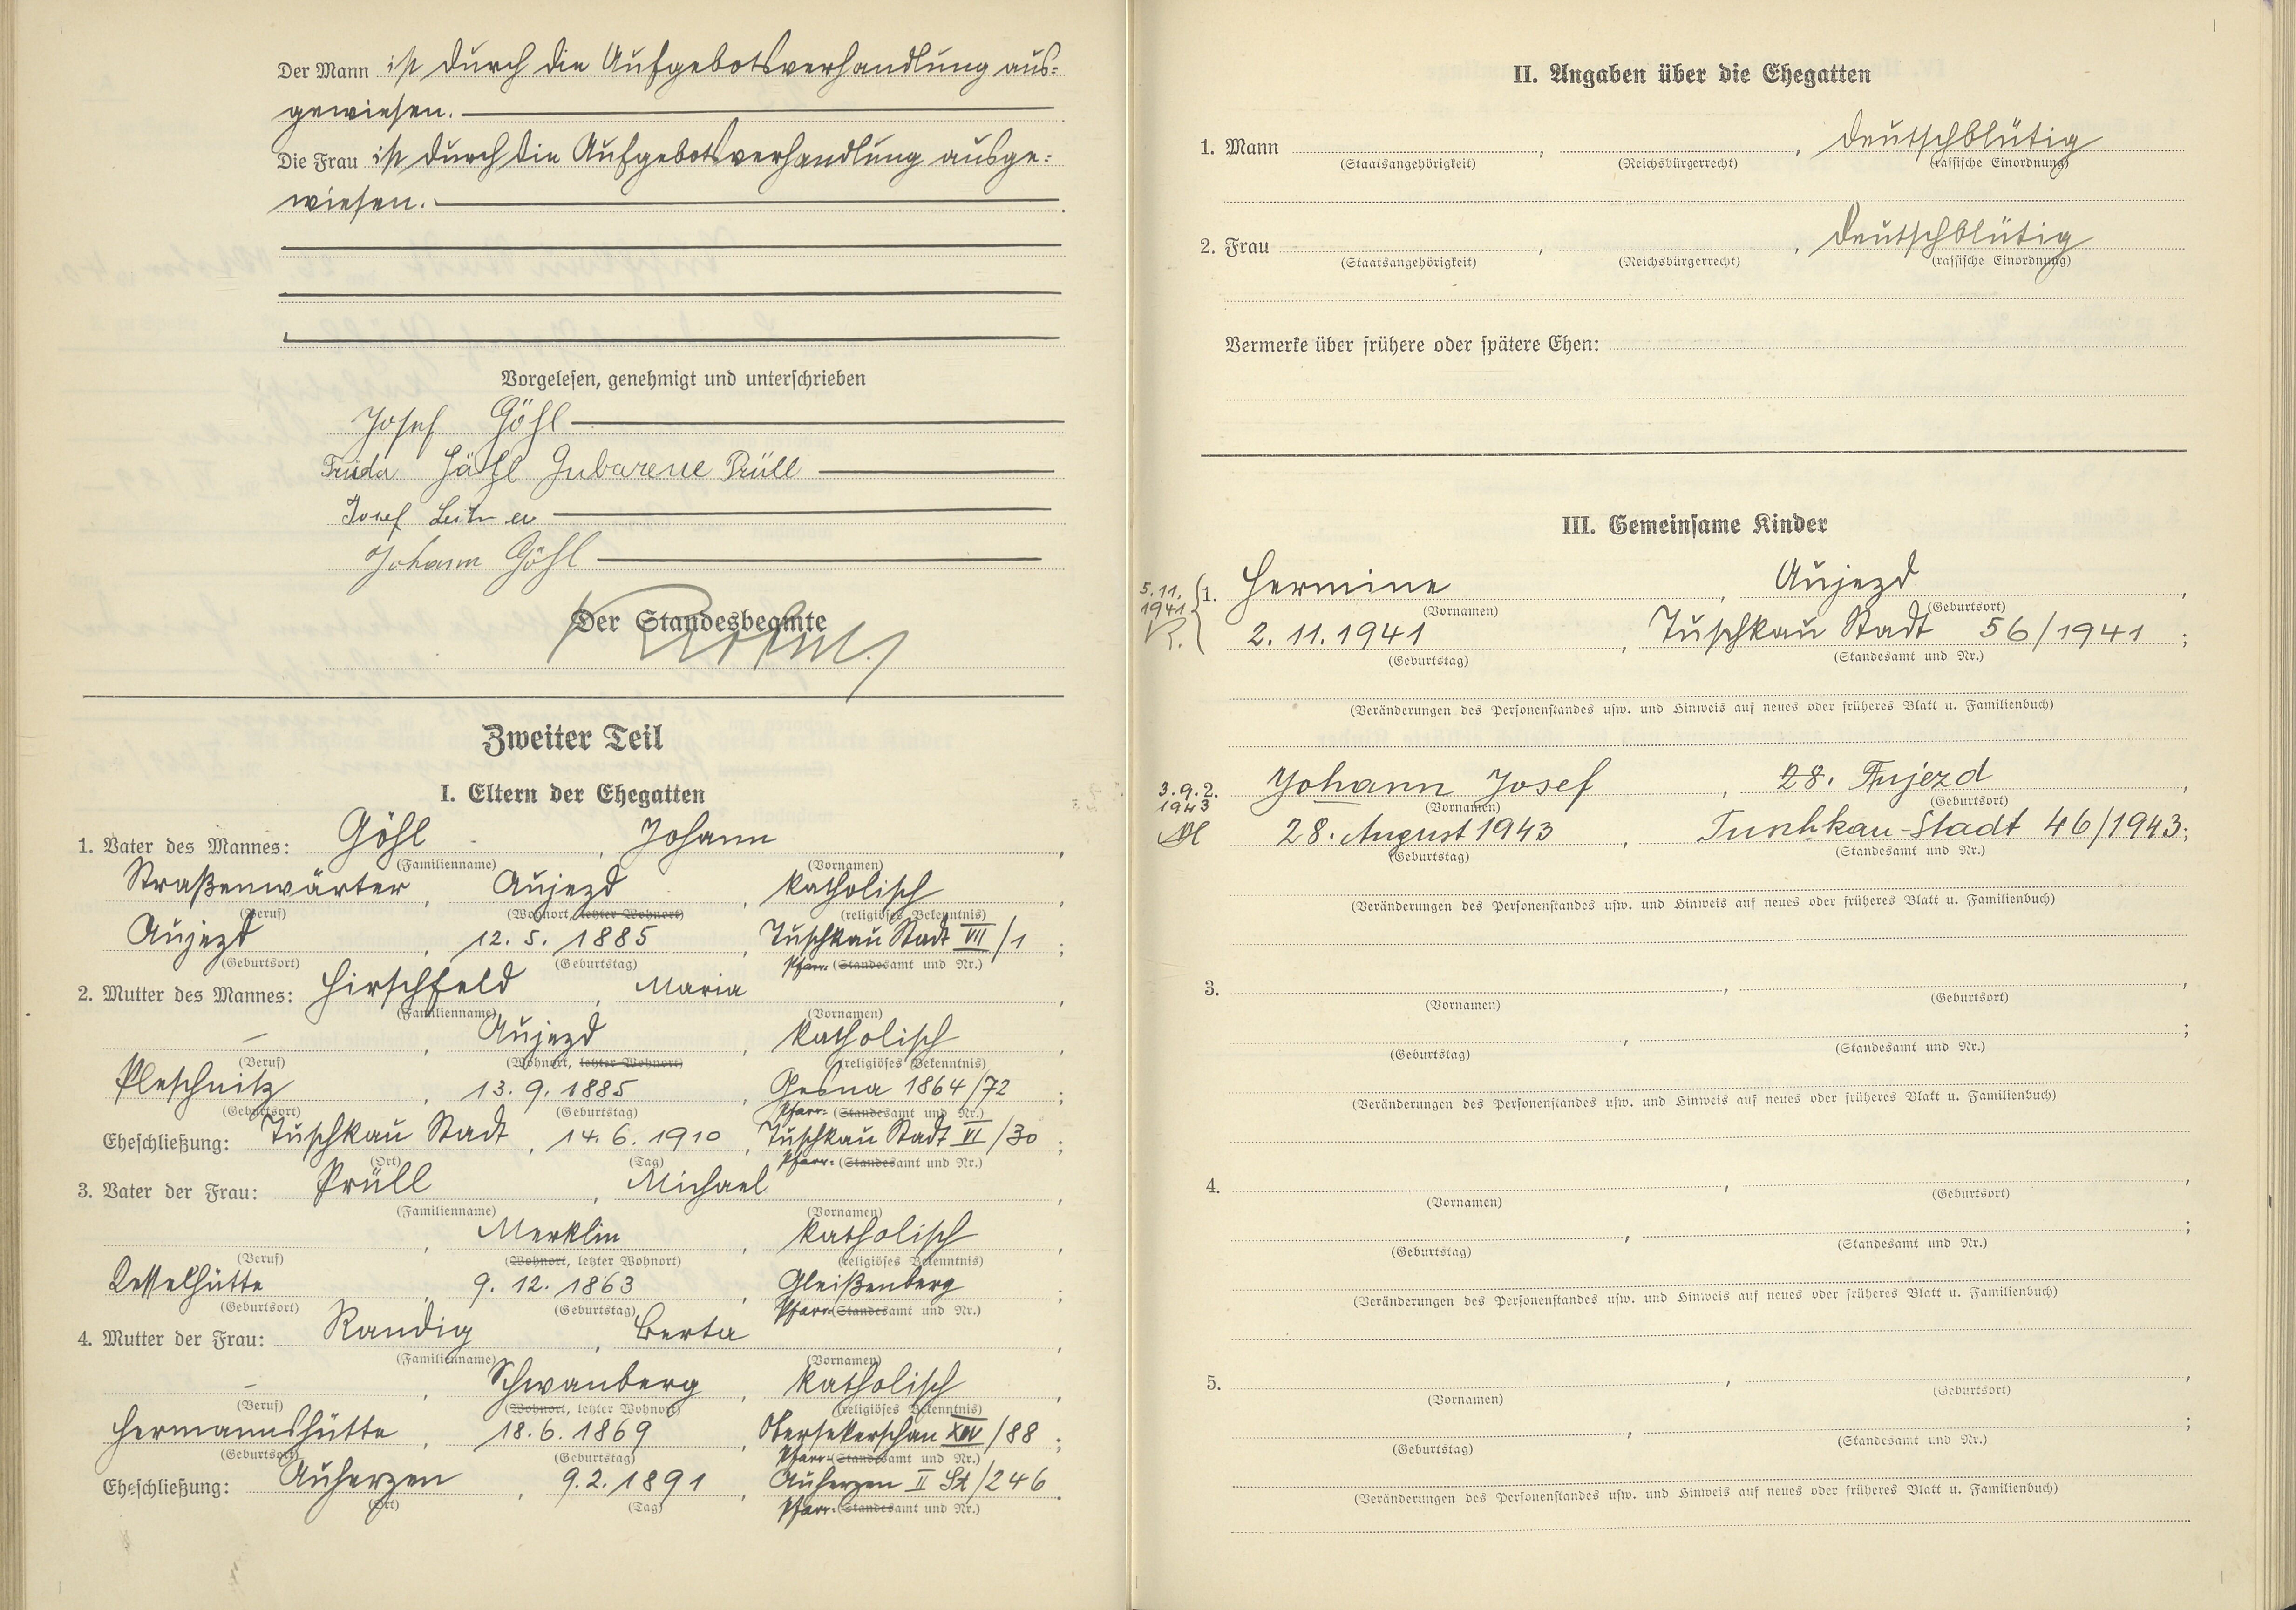 Der Mann ist durch die Aufgebotsverhandlung aus=
gewiesen.
Die Frau ist durch die Aufgebotsverhandlung ausge=
wiesen.
Vorgelesen, genehmigt und unterschrieben
Josef Göhl
Frieda Göhl Geborene Prüll
Josef Leitner
Johann Göhl
Der Standesbeamte
Zweiter Teil
I. Eltern der Ehegatten
1. Vater des Mannes: Göhl, Johann,
(Familienname) (Vornamen)
Straßenwärter, Aujezd, katholisch,
(Beruf) (Wohnort, letzter Wohnort) (religiöses Bekenntnis)
Aujezd, 12. 5. 1885, Tuschkau Stadt VII/1;
(Geburtsort) (Geburtstag) Pfarr= (Standesamt und Nr.)
2. Mutter des Mannes: Hirschfeld, Maria,
(Familienname) (Vornamen)
—, Aujezd, katholisch,
(Beruf) (Wohnort, letzter Wohnort) (religiöses Bekenntnis)
Pleschnitz, 13. 9. 1885, Gesna 1864/72;
(Geburtsort) (Geburtstag) Pfarr= (Standesamt und Nr.)
Eheschließung: Tuschkau Stadt, 14. 6. 1910, Tuschkau Stadt VI/30;
(Ort) (Tag) Pfarr= (Standesamt und Nr.)
3. Vater der Frau: Prüll, Michael,
(Familienname) (Vornamen)
, Merklin, katholisch,
(Beruf) (Wohnort, letzter Wohnort) (religiöses Bekenntnis)
Kesselhütte, 9. 12. 1863, Gleißenberg;
(Geburtsort) (Geburtstag) Pfarr= (Standesamt und Nr.)
4. Mutter der Frau: Randig, Berta,
(Familienname) (Vornamen)
—, Schwanberg, katholisch,
(Beruf) (Wohnort, letzter Wohnort) (religiöses Bekenntnis)
Hermannshütte, 18. 6. 1869, Obersekerschan XIV/88;
(Geburtsort) (Geburtstag) Pfarr= (Standesamt und Nr.)
Eheschließung: Auherzen, 9. 2. 1891, Auherzen II St/246.
(Ort) (Tag) Pfarr= (Standesamt und Nr.)
II. Angaben über die Ehegatten
1. Mann , , deutschblütig
(Staatsangehörigkeit) (Reichsbürgerrecht) (rassische Einordnung)
2. Frau , , deutschblütig
(Staatsangehörigkeit) (Reichsbürgerrecht) (rassische Einordnung)
Vermerke über frühere oder spätere Ehen:
III. Gemeinsame Kinder
5. 11.
1941
1. Hermine, Aujezd,
(Vornamen) (Geburtsort)
2. 11. 1941, Tuschkau Stadt 56/1941;
(Geburtstag) (Standesamt und Nr.)
(Veränderungen des Personenstandes usw. und Hinweis auf neues oder früheres Blatt u. Familienbuch)
3. 9.
1943
2. Johann Josef, 28. Aujezd,
(Vornamen) (Geburtsort)
28. August 1943, Tuschkau-Stadt 46/1943;
(Geburtstag) (Standesamt und Nr.)
(Veränderungen des Personenstandes usw. und Hinweis auf neues oder früheres Blatt u. Familienbuch)
3. , ,
(Vornamen) (Geburtsort)
, ;
(Geburtstag) (Standesamt und Nr.)
(Veränderungen des Personenstandes usw. und Hinweis auf neues oder früheres Blatt u. Familienbuch)
4. , ,
(Vornamen) (Geburtsort)
, ;
(Geburtstag) (Standesamt und Nr.)
(Veränderungen des Personenstandes usw. und Hinweis auf neues oder früheres Blatt u. Familienbuch)
5. , ,
(Vornamen) (Geburtsort)
, ;
(Geburtstag) (Standesamt und Nr.)
(Veränderungen des Personenstandes usw. und Hinweis auf neues oder früheres Blatt u. Familienbuch)